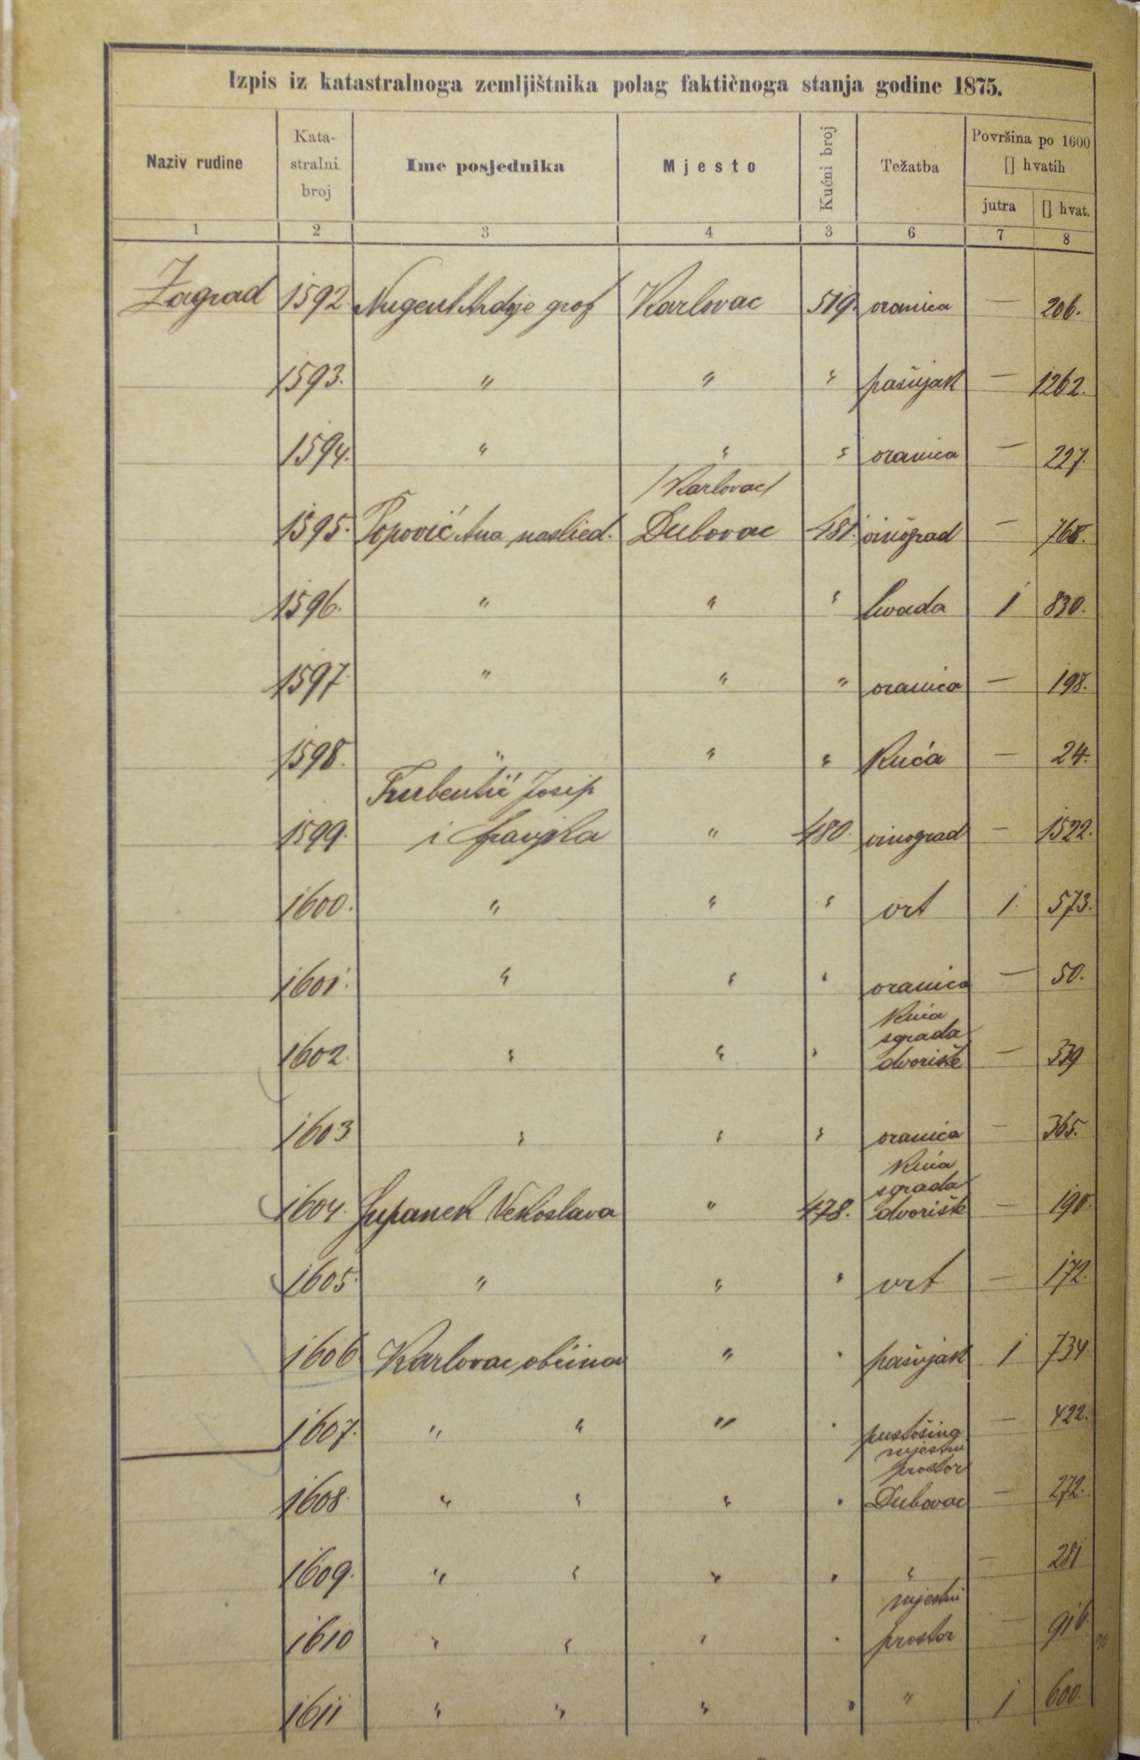 Izpis iz katastralnoga zemljištnika polag faktičnoga stanja godine 1875.
Naziv rudine Kata-stralni broj Ime posjednika Mjesto Kućni broj Težatba Površina po 1600 [] hvatih
jutra [] hvat.
1 2 3 4 3 6 7 8
Zagrad 1592. Nugent grof Karlovac 519. oranica — 206.
1593. " " " pašnjak — 1262.
1594. " " " oranica — 227.
/Karlovac/
1595. Popović Ana naslied. Dubovac 481. vinograd — 768.
1596. " " " livada 1 830.
1597 " " " oranica — 198.
1598. " " " Kuća — 24.
Josip
1599. i 480 vinograd — 1522.
1600. " " " vrt 1. 573.
1601. " " " oranica — 50.
Kuća
sgrada
1602. " " " dvorište — 339
1603 " " " oranica — 365.
Kuća
sgrada
1604. Županek Vekoslava " 478. dvorište — 190.
1605. " " " vrt — 172.
1606 Karlovac obćina " " pašnjak 1 734
1607. " " " " pustošina — 422.
mjestni
prostor
1608. " " " " Dubovac — 272.
1609. " " " " " — 281
mjestni
1610 " " " " prostor — 916.
1611 " " " " " 1 600.